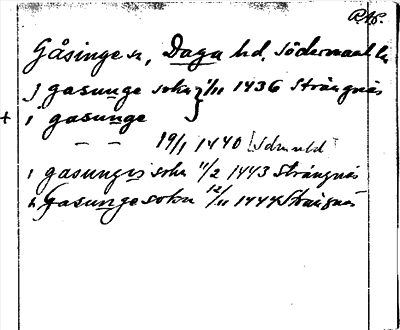 RAP.
Gåsinge sn, Daga hd, Södermanl. län
J gasunge sokn } 1/11 1436 Strängnäs
+ i gasunge
— — 19/1 1440 [Sdmnld]
i gasungis sokn 11/2 1443 Strängnäs
i gasunge sokn 12/11 1444 Strängnäs